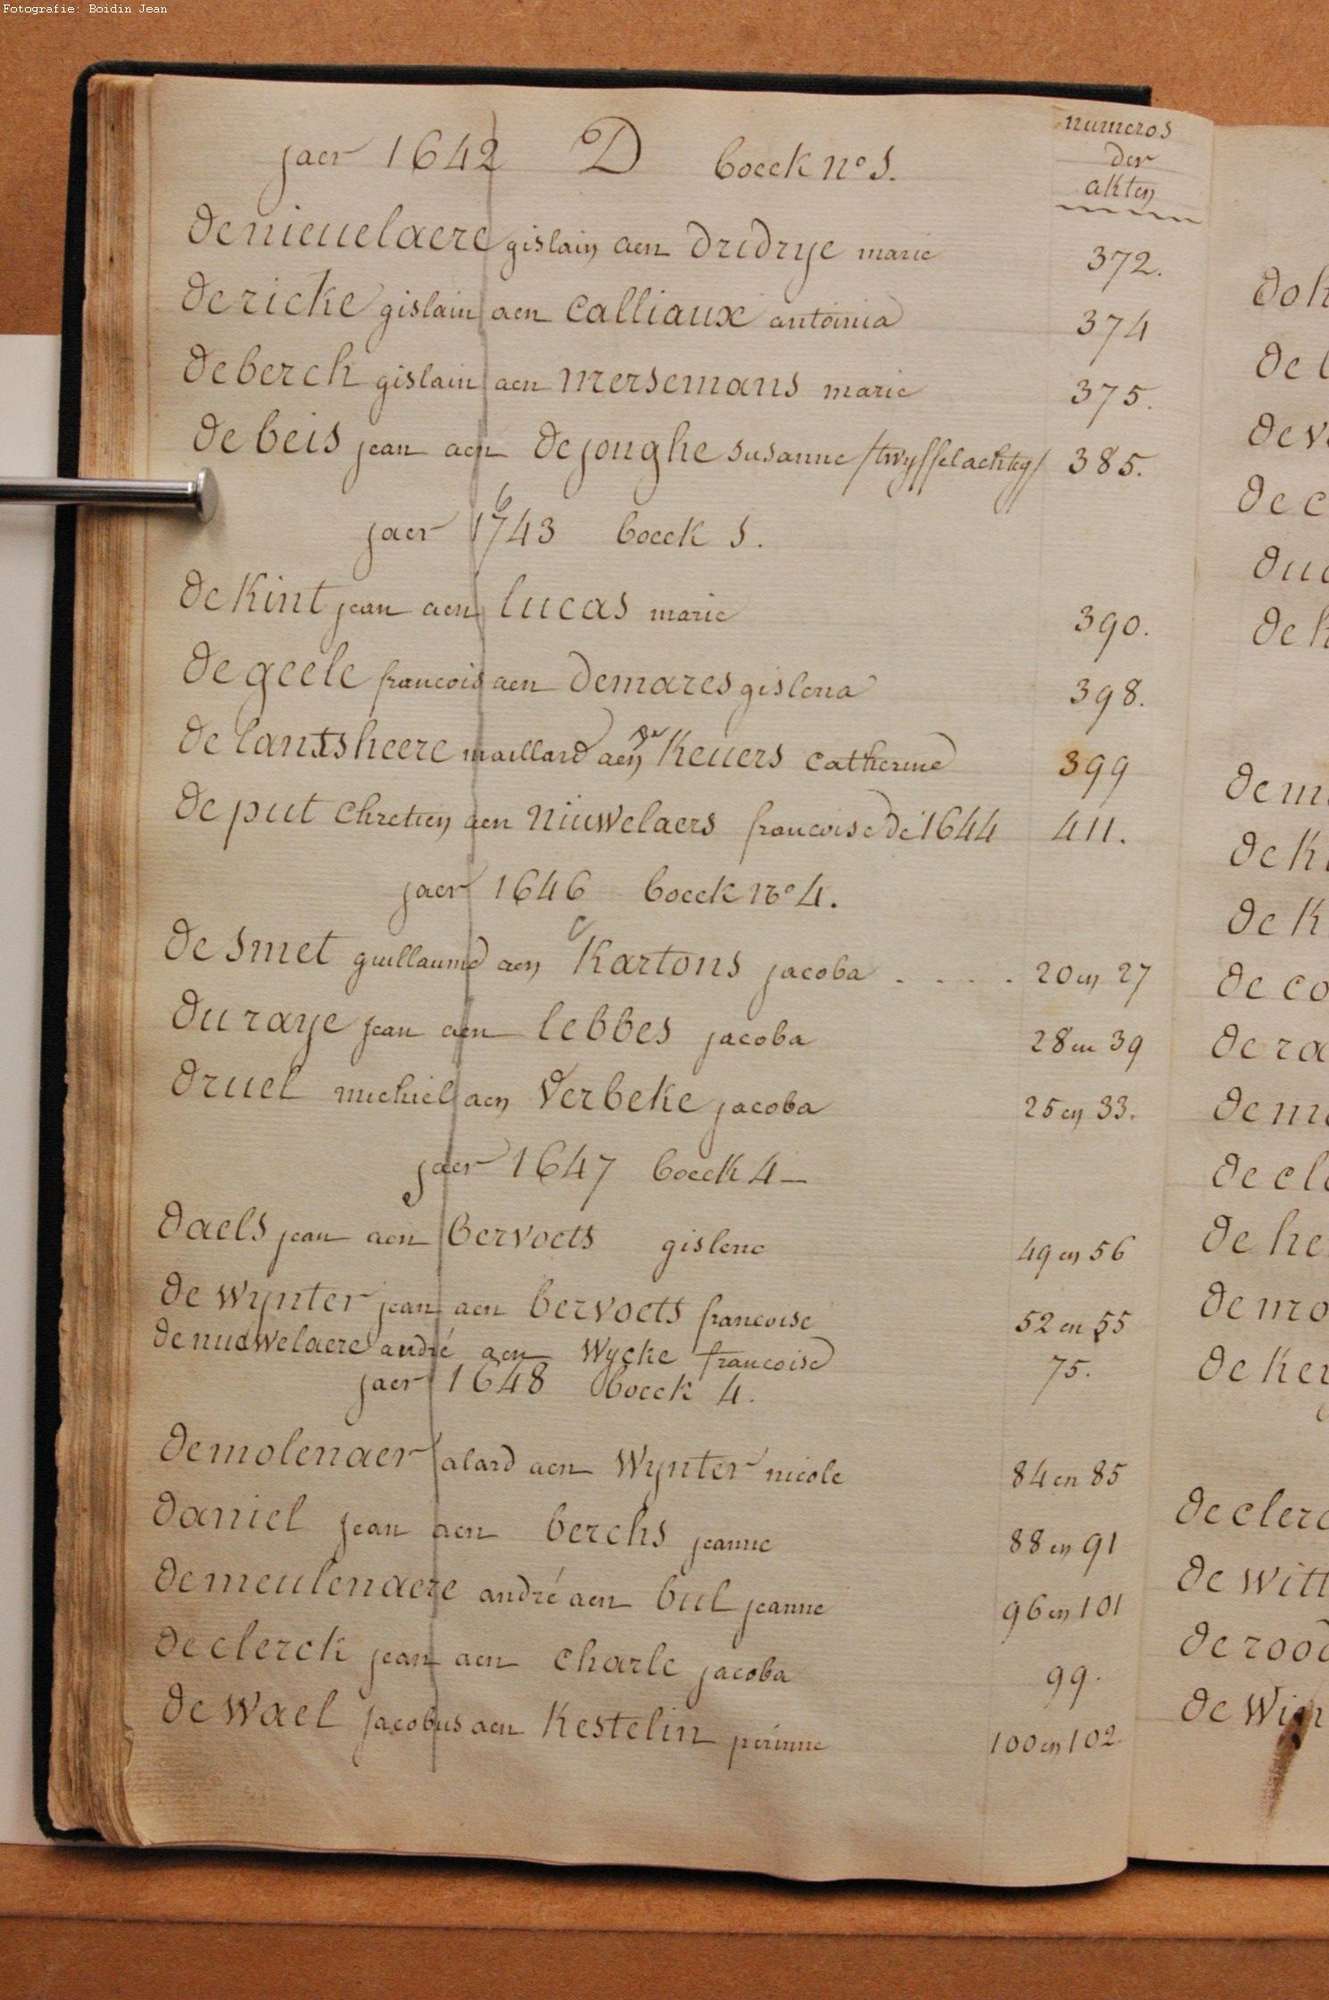 Fotografie: Boidin Jean
jaer 1642 D boeck n° 1.
numeros
der
akten
de nieuelaere gislain aen dridrye marie 372.
de ricke gislain aen calliaux antoinia 374
de berch gislain aen mersemans marie 375.
de beis jean aen de jonghe susanne /twyffelachtig/ 385.
6
jaer 1743 boeck 1.
de Kint jean aen lucas marie 390.
de geele francois aen demares gislena 398.
de lantsheere maillard aen de Keuers catherine 399
de put chretien aen niuwelaers francoise de 1644 411.
jaer 1646 boeck n° 4.
c
de smet guillaume aen Kartons jacoba . . . . 20 en 27
du raye jean aen lebbes jacoba 28 en 39
druel michiel aen verbeke jacoba 25 en 33.
jaer 1647 boeck 4 –
daels jean aen bervoets gislene 49 en 56
de wynter jean aen bervoets francoise 52 en 55
de nuewelaere andré aen Wycke francoise 75.
jaer 1648 boeck 4.
demolenaer alard aen Wynter nicole 84 en 85
daniel jean aen berchs jeanne 88 en 91
de meulenaere andré aen bul jeanne 96 en 101
de clerck jean aen charle jacoba 99.
de wael jacobus aen Kestelin perinne 100 en 102